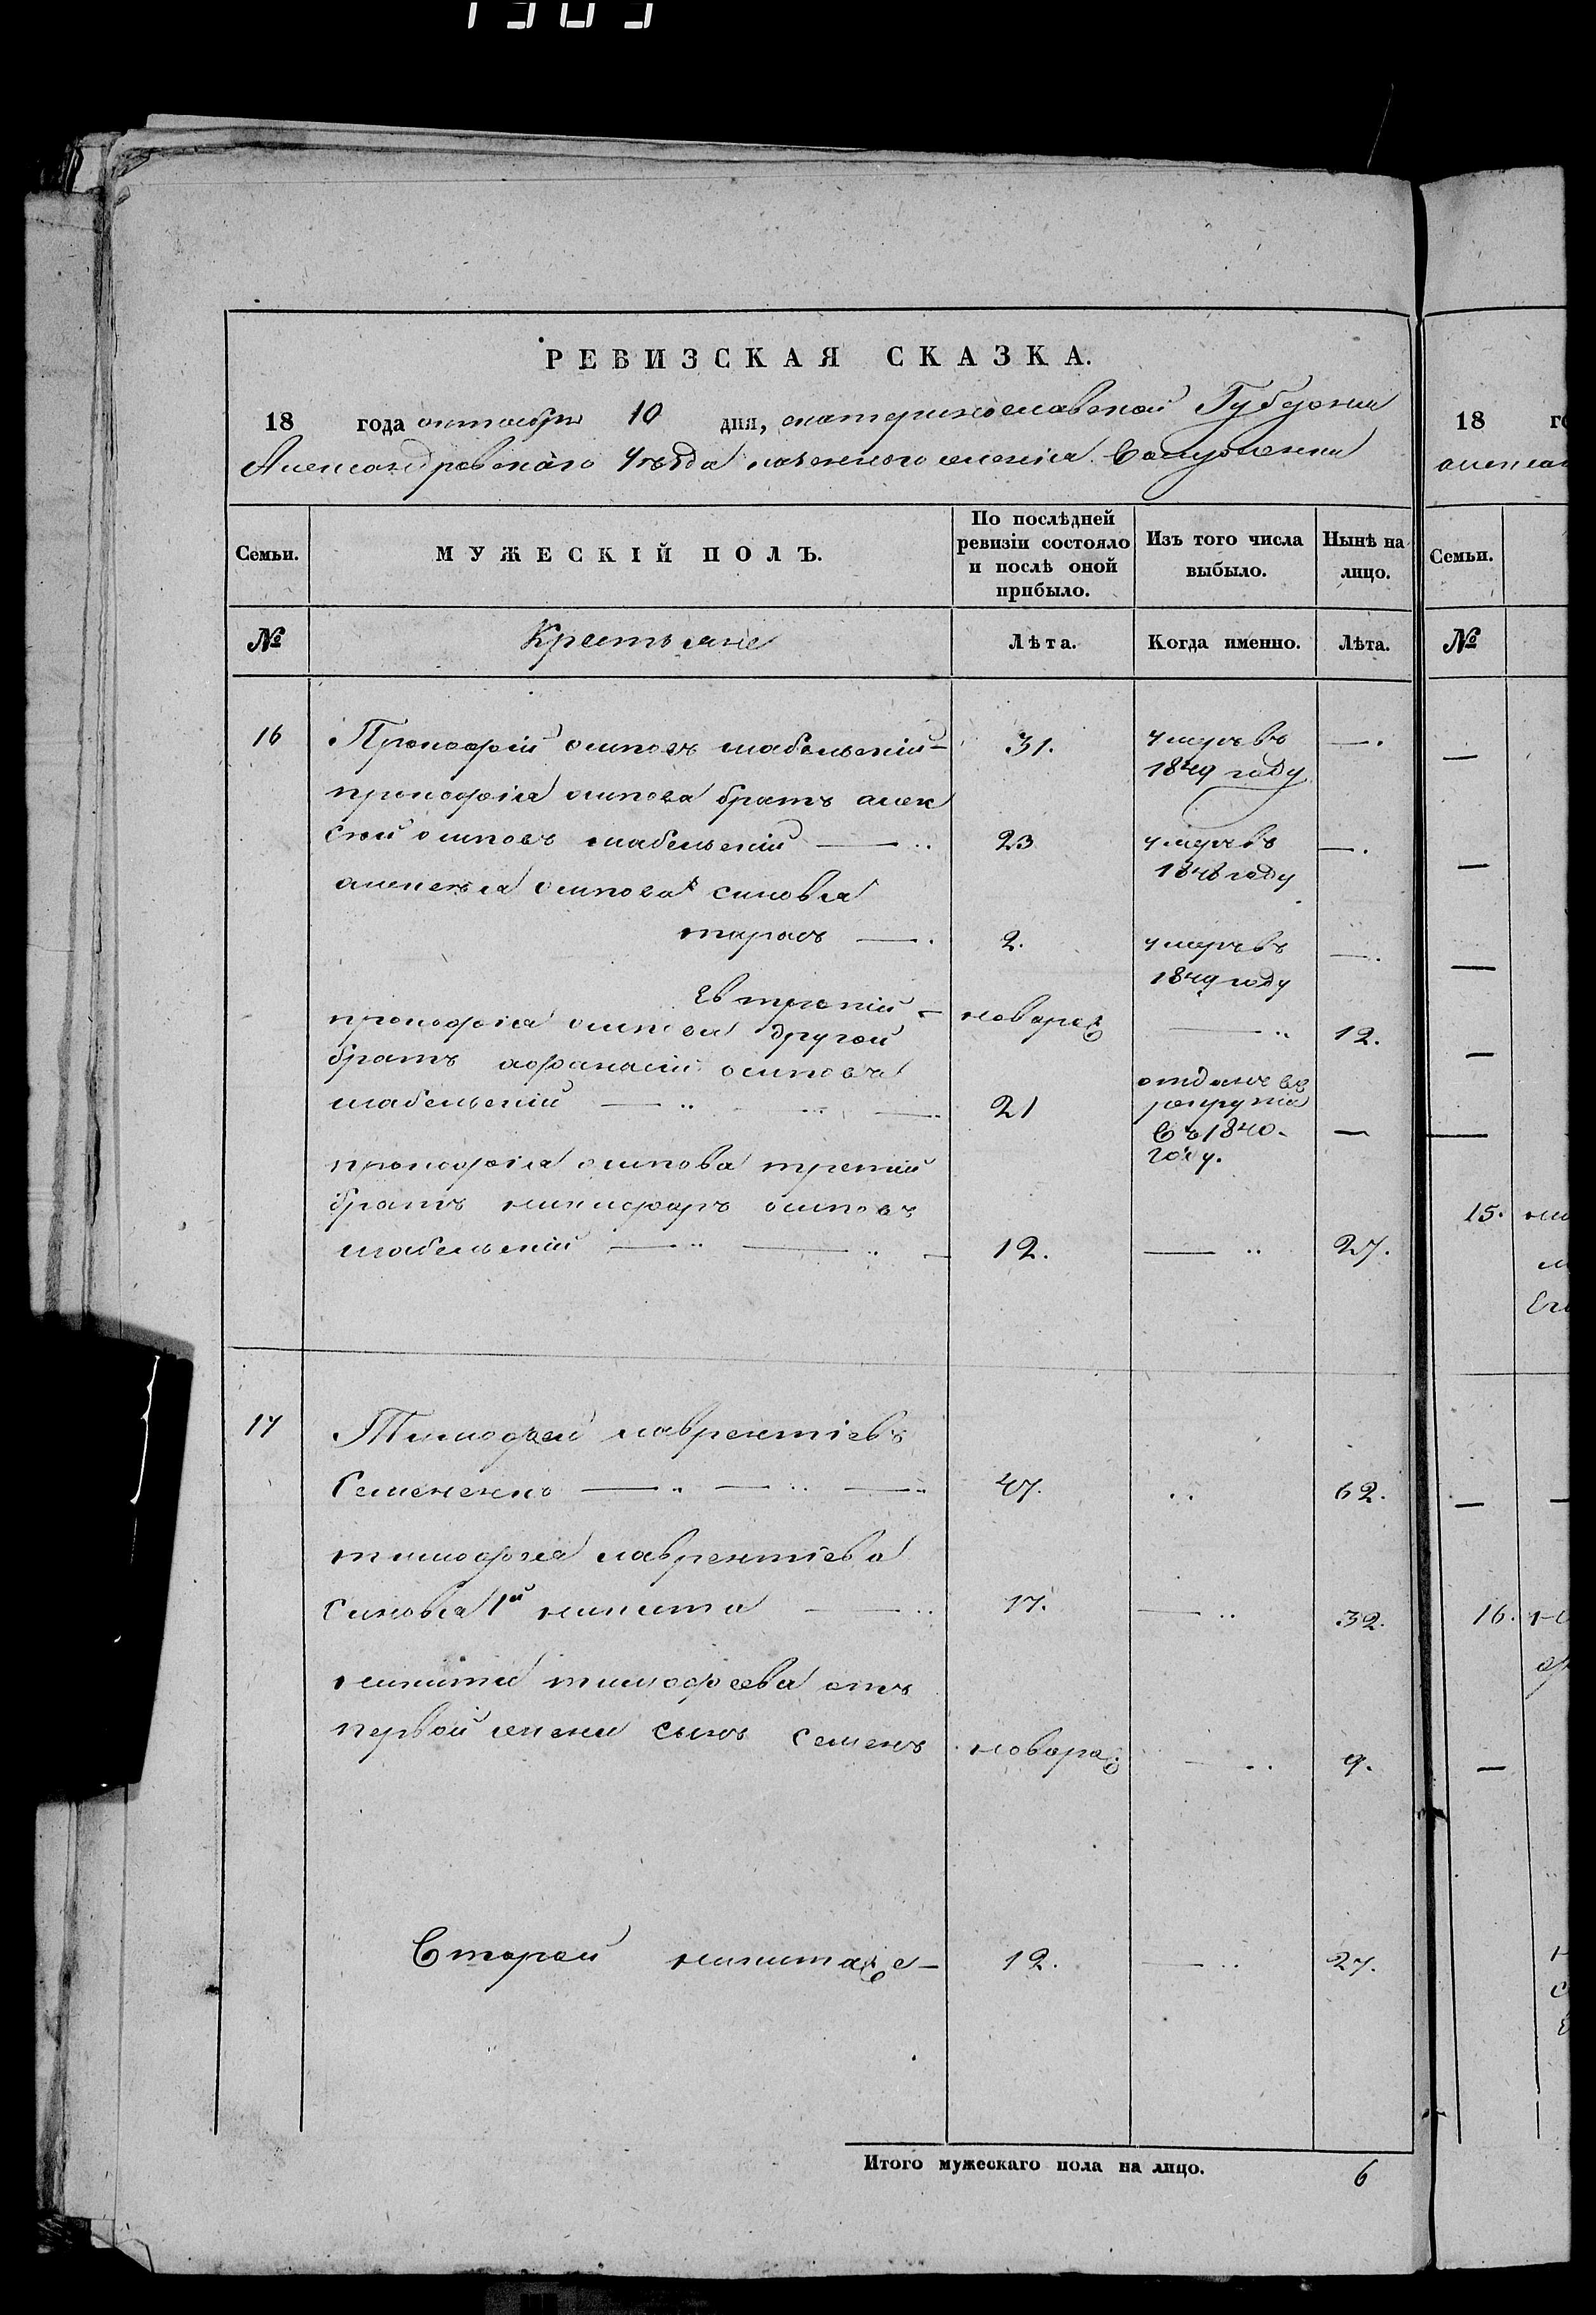 РЕВИЗСКАЯ СКАЗКА.
18 года октября 10 дня, екатеринославской Губернии
Александровского Уезда казенного селения
Семьи.
МУЖЕСКІЙ ПОЛЪ.
По послѣдней ревизіи состояло и послѣ оной прибыло.
Изъ того числа выбыло.
Нынѣ на лицо.
№
Крестьяне
Лѣта.
Когда именно.
Лѣта.
16 Прокофій осиповъ шабельскій – 31. умеръ въ —.
1849 году
прокофія осипова братъ алек
сѣй осиповъ шабельскій —.. 23 умеръ въ —.
1848 году
алексѣя осипова синовья
тарасъ —. 2. умеръ въ —.
1849 году
Евтропій – новорож —.. 12.
прокофія осипова другой
братъ афанасій осиповъ
шабельскій —.. —.. 21 отданъ въ рекруты
въ 1840. —
году.
прокофія осипова третій
братъ никифоръ осиповъ
шабельскій —.. —.. – 12. —.. 27.
17 Тимофей лаврентіевъ
Семененко —.. —.. —.. 47. .. 62.
тимофея лаврентіева
синовья 1й никита —.. 17. —.. 32.
никити тимофеева отъ
первой жени сынъ семенъ новорож —.. 9.
Второй никита же – 12. —.. 27.
Итого мужескаго пола на лицо. 6
18
Семьи.
№
15.
16.